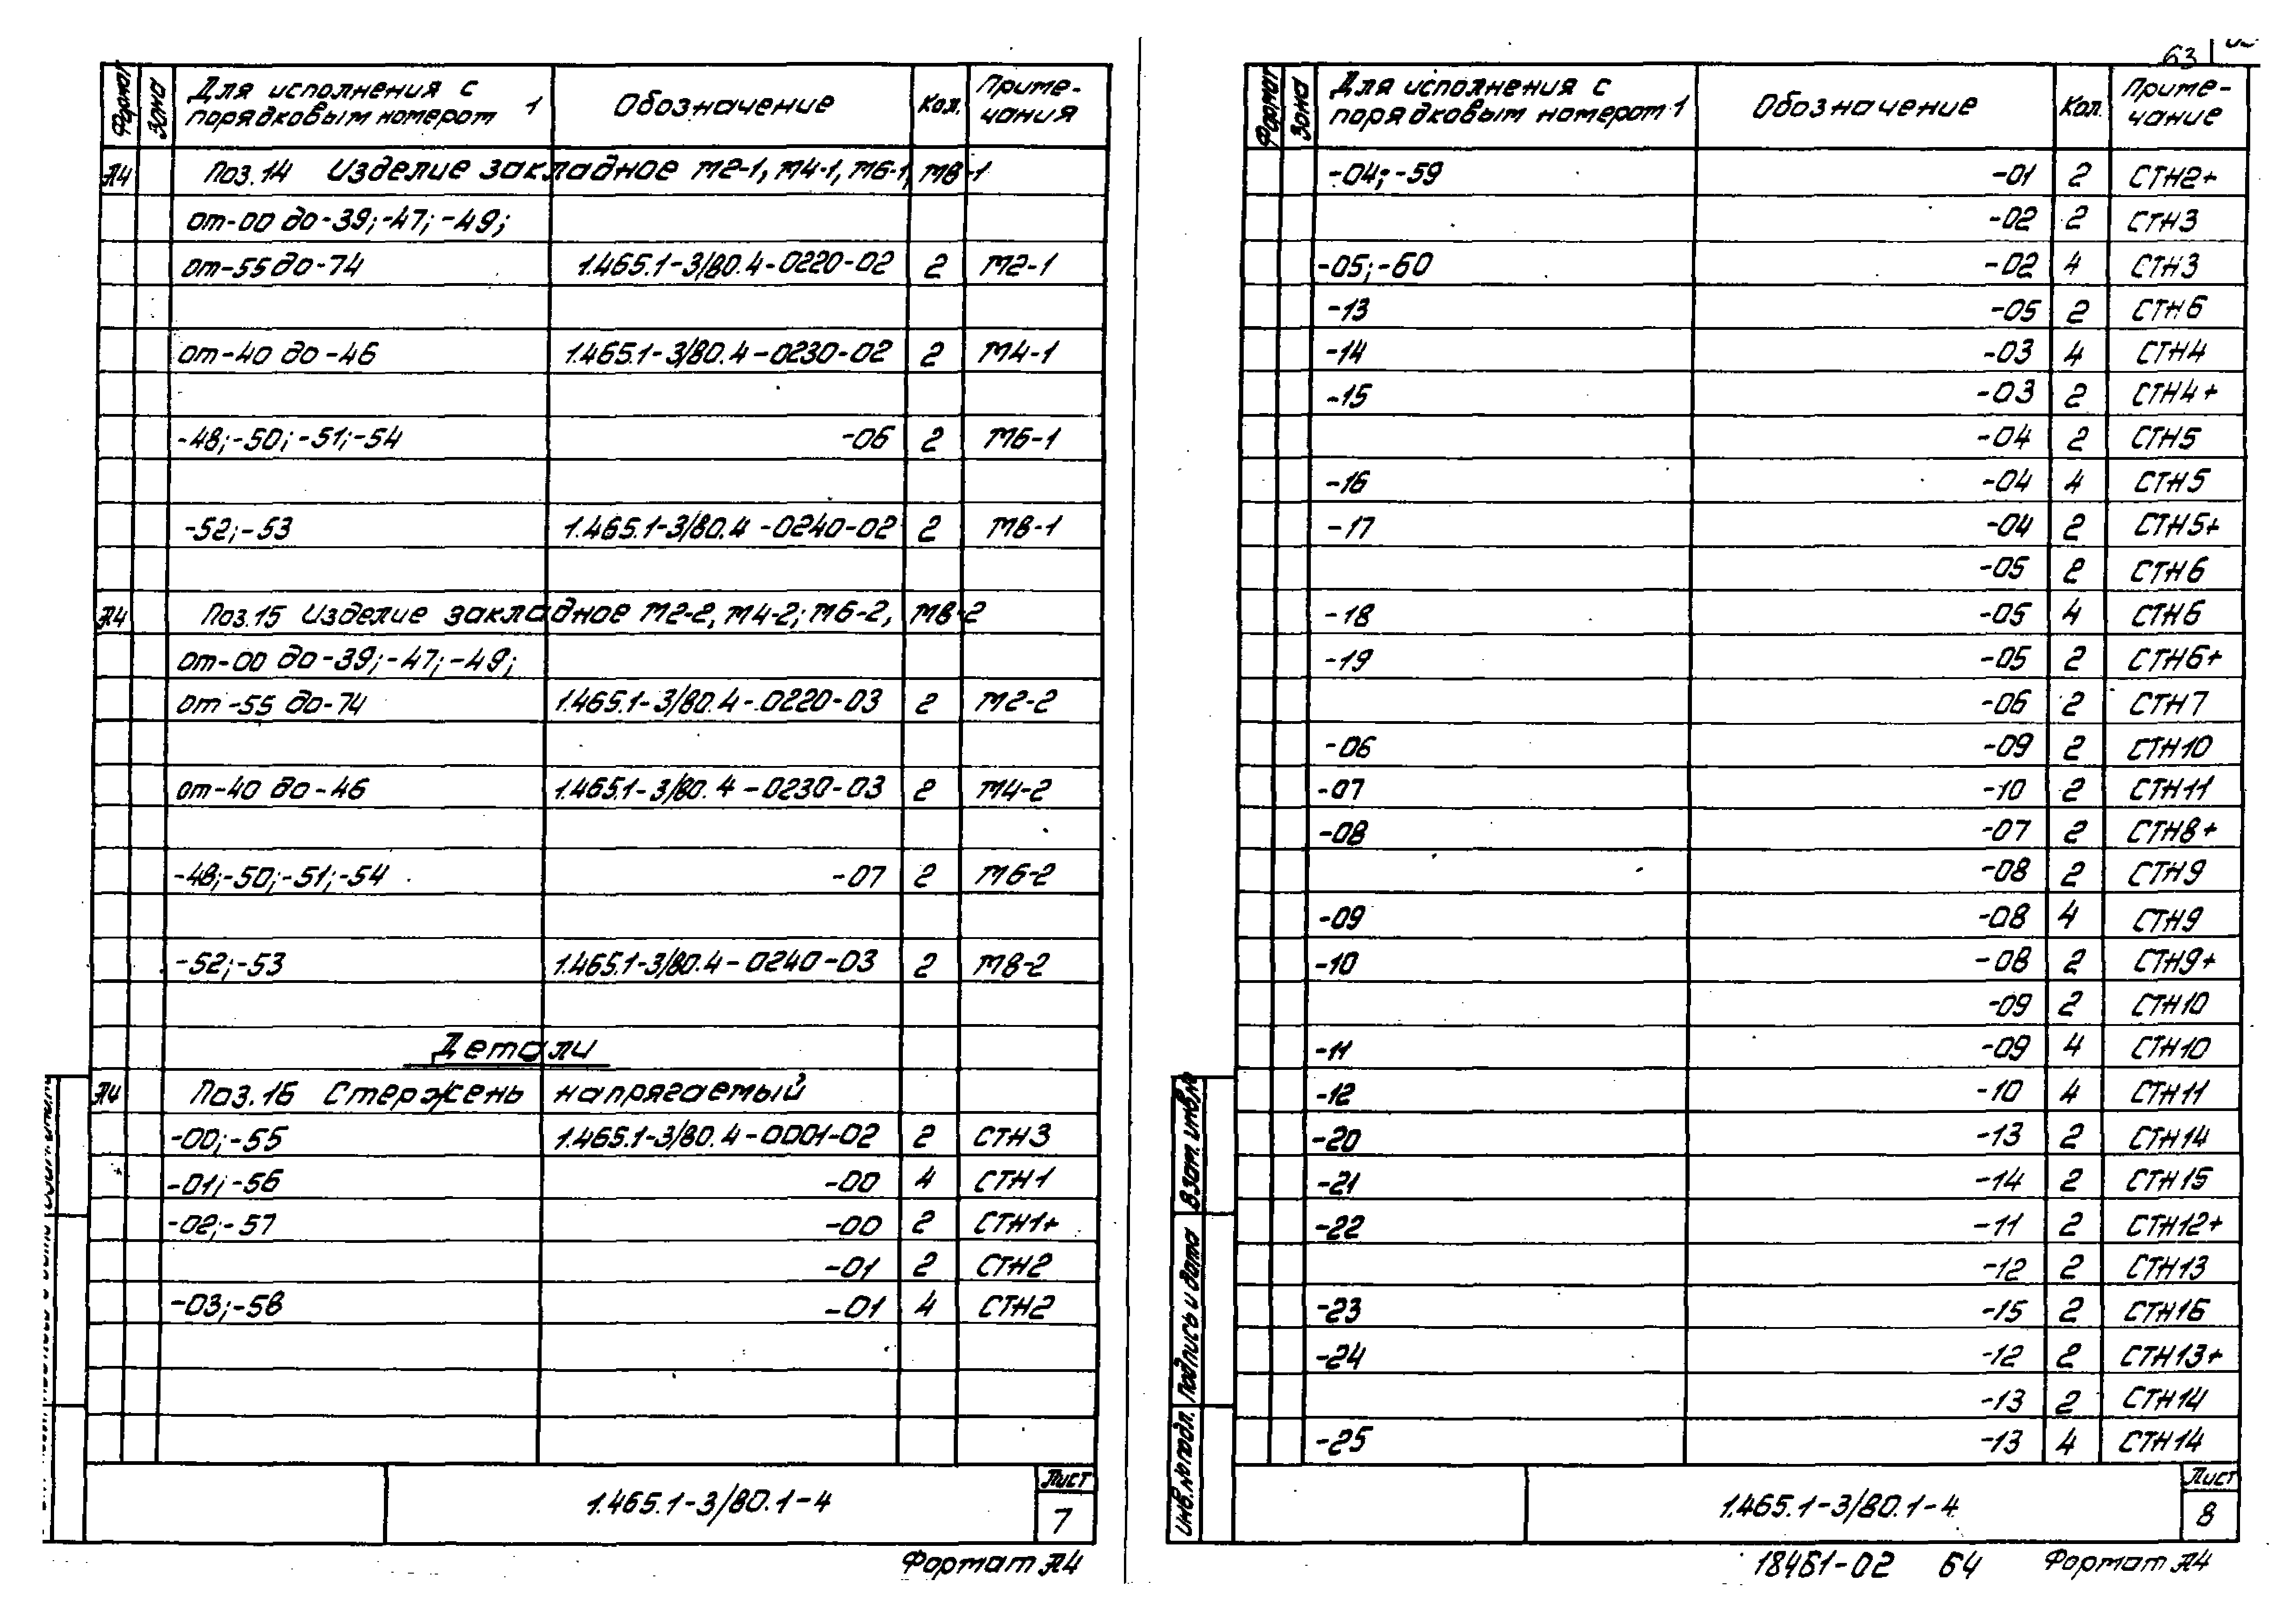 Формат Зона Для исполнения с порядковым номером 1 Обозначение Кол. Приме-чания
А4 Поз.14 Изделие закладное М2-1, М4-1, М6-1, М8-1
от-00 до-39;-47;-49;
от-55 до-74 1.465.1-3/80.4-0220-02 2 М2-1
от-40 до-46 1.465.1-3/80.4-0230-02 2 М4-1
-48;-50;-51;-54 -06 2 М6-1
-52;-53 1.465.1-3/80.4-0240-02 2 М8-1
А4 Поз.15 Изделие закладное М2-2, М4-2; М6-2, М8-2
от-00 до-39;-47;-49;
от-55 до-74 1.465.1-3/80.4-0220-03 2 М2-2
от-40 до-46 1.465.1-3/80.4-0230-03 2 М4-2
-48;-50;-51;-54 -07 2 М6-2
-52;-53 1.465.1-3/80.4-0240-03 2 М8-2
Детали
А4 Поз.16 Стержень напрягаемый
-00;-55 1.465.1-3/80.4-0001-02 2 СТН3
-01;-56 -00 4 СТН1
-02;-57 -00 2 СТН1+
-01 2 СТН2
-03;-58 -01 4 СТН2
1.465.1-3/80.1-4
Лист
7
Формат А4
63
Формат Зона Для исполнения с порядковым номером 1 Обозначение Кол. Приме-чание
-04;-59 -01 2 СТН2+
-02 2 СТН3
-05;-60 -02 4 СТН3
-13 -05 2 СТН6
-14 -03 4 СТН4
-15 -03 2 СТН4+
-04 2 СТН5
-16 -04 4 СТН5
-17 -04 2 СТН5+
-05 2 СТН6
-18 -05 4 СТН6
-19 -05 2 СТН6+
-06 2 СТН7
-06 -09 2 СТН10
-07 -10 2 СТН11
-08 -07 2 СТН8+
-08 2 СТН9
-09 -08 4 СТН9
-10 -08 2 СТН9+
-09 2 СТН10
-11 -09 4 СТН10
-12 -10 4 СТН11
-20 -13 2 СТН14
-21 -14 2 СТН15
-22 -11 2 СТН12+
-12 2 СТН13
-23 -15 2 СТН16
-24 -12 2 СТН13+
-13 2 СТН14
-25 -13 4 СТН14
Взам. инв.№
Подпись и дата
Инв.№ подл.
1.465.1-3/80.1-4
Лист
8
18461-02 64 Формат А4